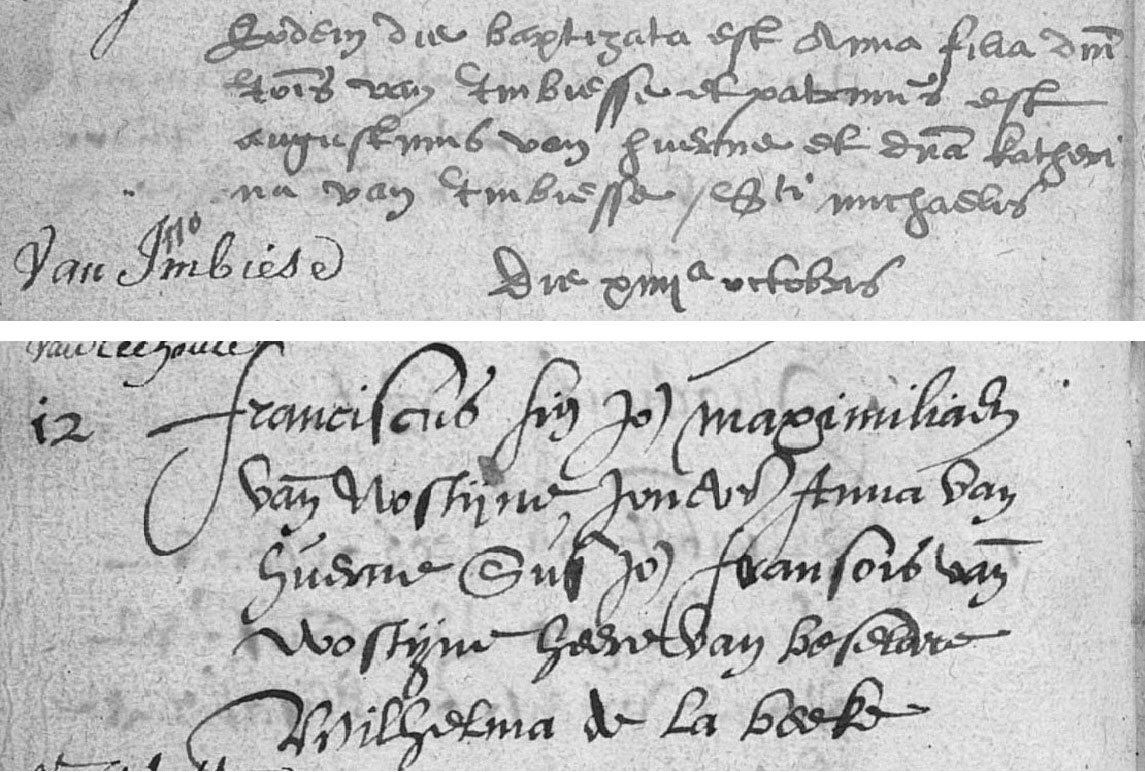 Eodem die baptizata est Anna filia dni
van Imbiesse et patrinus est
augustinus van huerne et dna katheri
na van Imbiesse / Sti michaelis
Van Imbiese
Die xiiii a octobris
12 franciscus fis Jo) maximiliaen
van Wostijne Joncvr) Anna van
huerne Sus Jo) fransois van
Wostijne heere van beselare
Wilhelma de la beeke